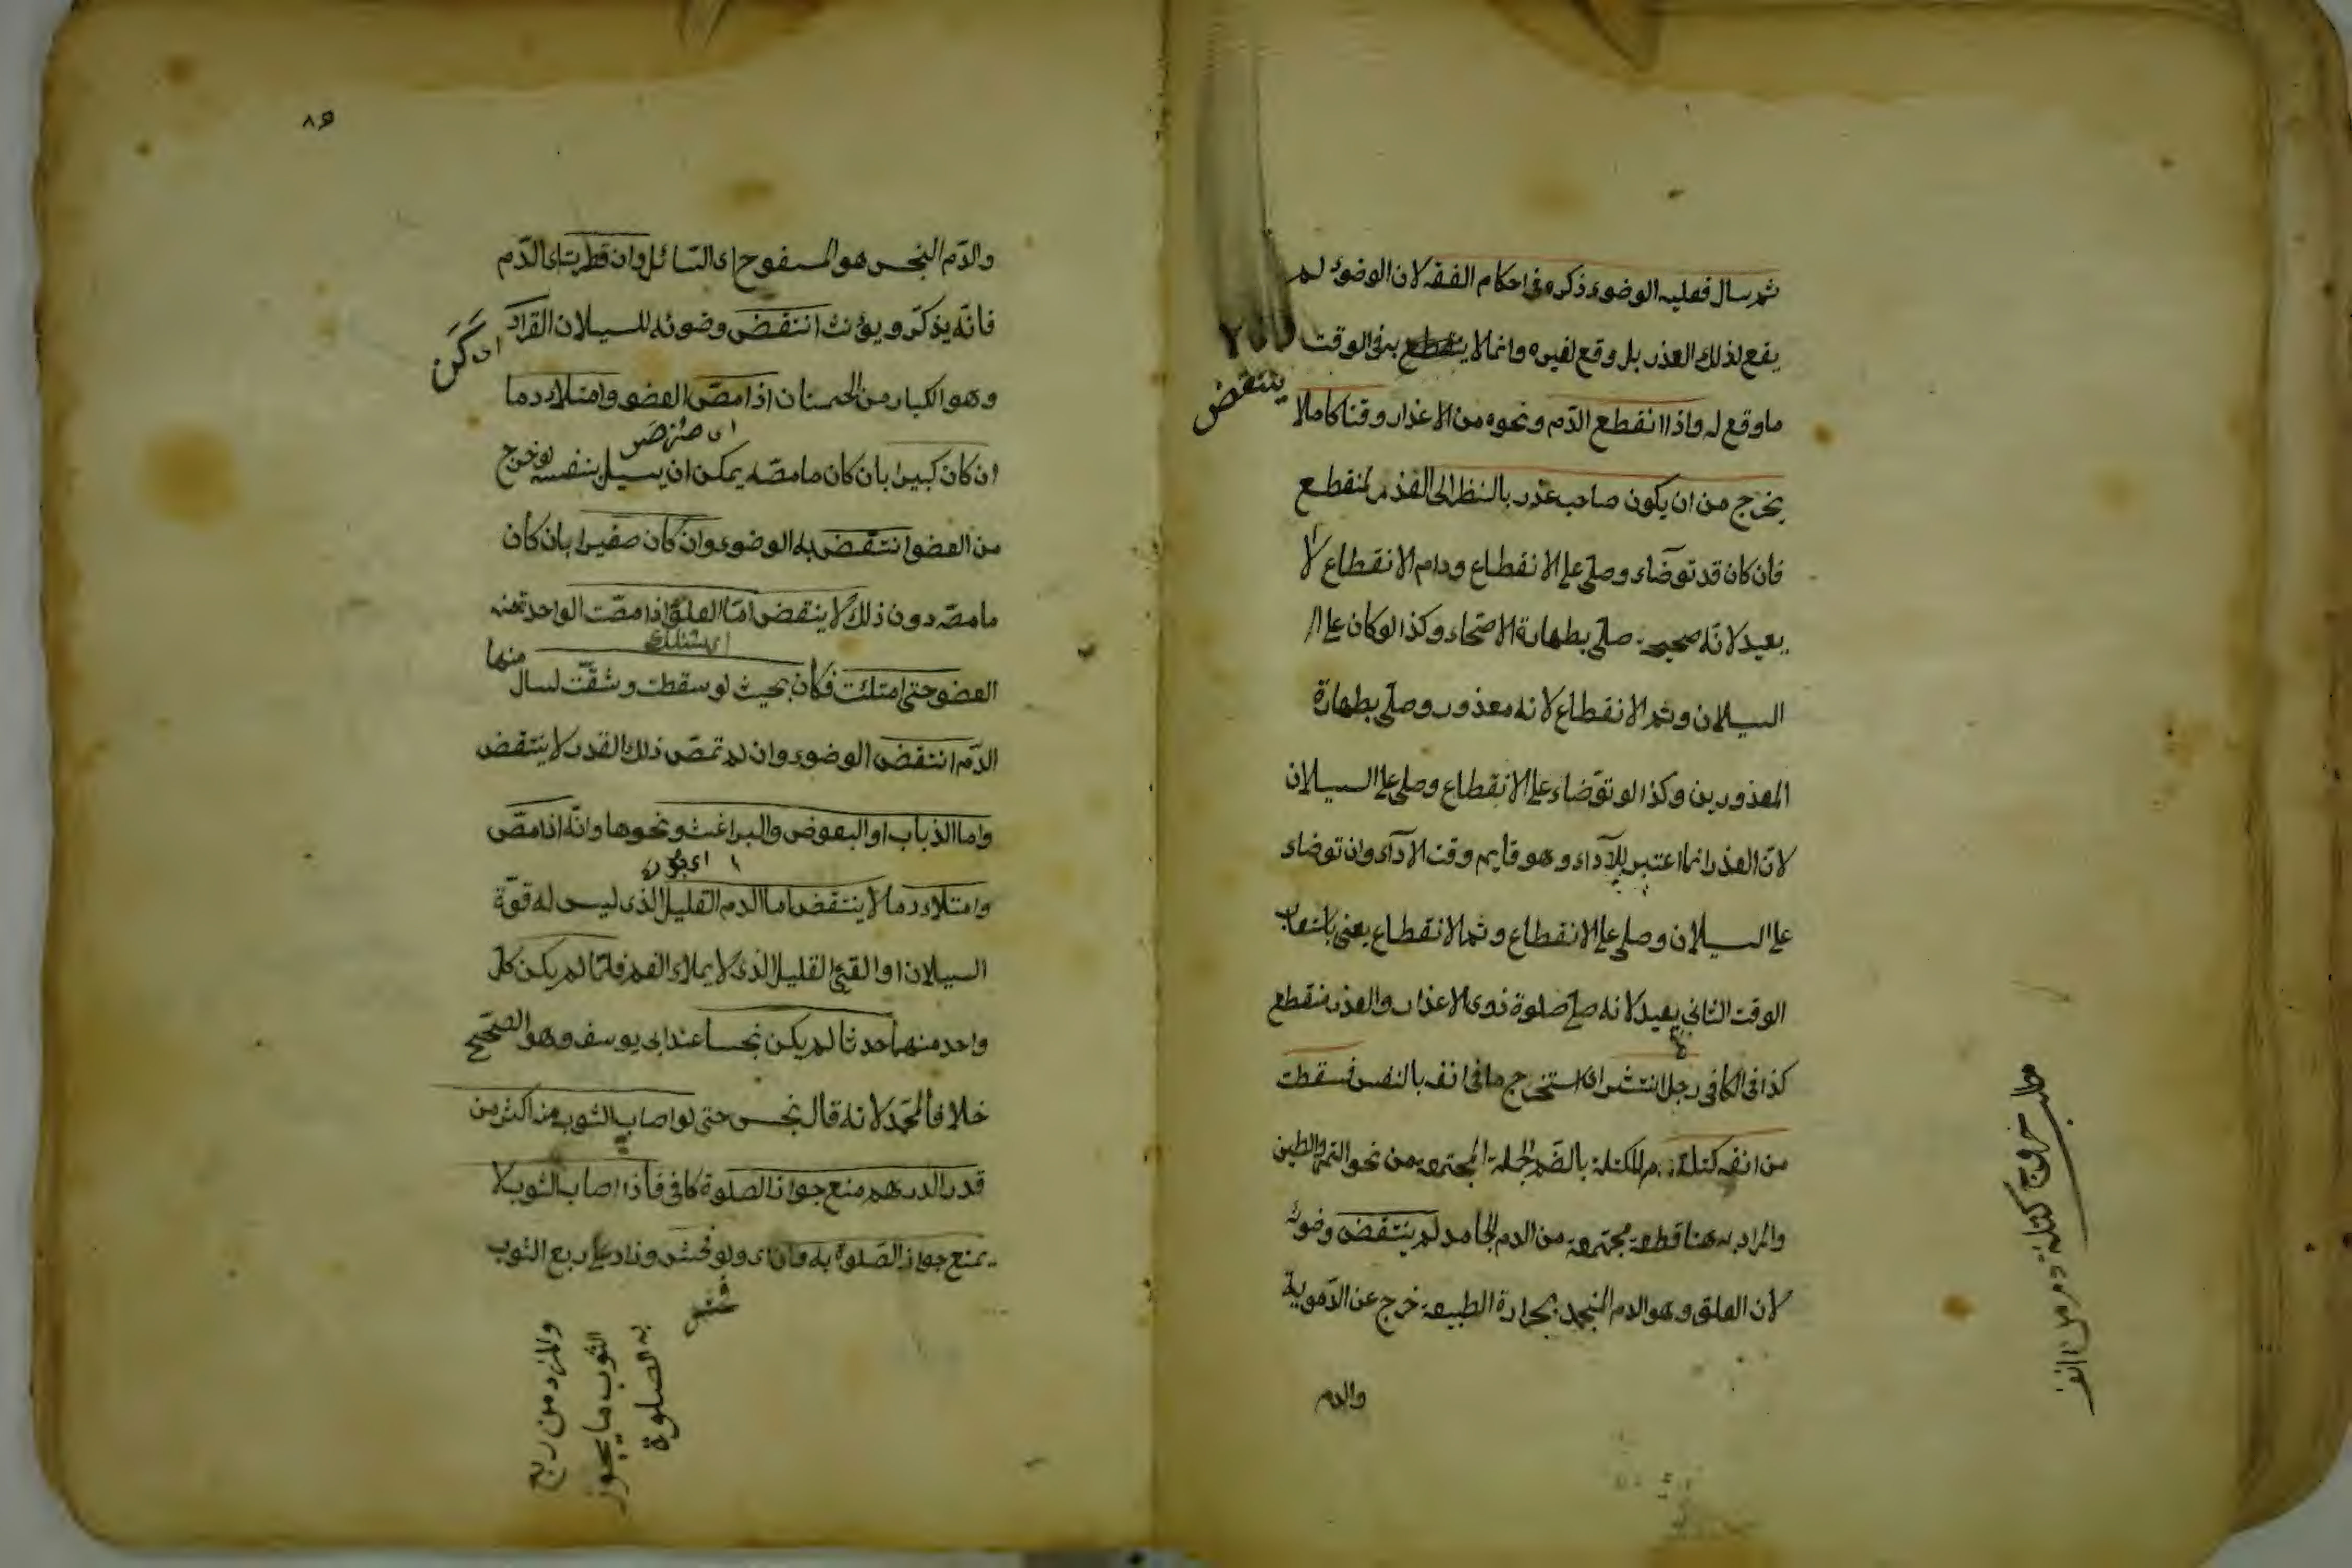 ثم سال فعليه الوضوء ذكره في احكام الفقه لان الوضوء لم
يقع لذلك العذر بل وقع لغيره وانما لا ينتقطع به في الوقت
ينتقض
ما وقع له واذا انقطع الدّم ونحوه من الاعذار وقتا كاملا
يخرج من ان يكون صاحب عذر بالنظر الى العذر المنقطع
فان كان قد توضّاء وصلّى على الانقطاع ودام الانقطاع لا
يعيد لانّه صحيح صلّى بطهارة الاصحّاء وكذا لو كان على
السيلان وثم الانقطاع لانه معذور وصلّى بطهارة
المعذورين وكذا لو توضّاء على الانقطاع وصلى على السيلان
لانّ العذر انما اعتبر للآداء وهو قايم وقت الآداء وان توضاء
على السيلان وصلى على الانقطاع وثم الانقطاع يعنى باستيعاب
الوقت الثاني يعيد لانه صلّى صلوة ذوى الاعذار والعذر منقطع
كذا في الكافى رجل انتثر اى استخرج ما فى انفه بالنفس فسقطت
من انفه كتلة دم الكتلة بالضّم الجملة المجتمعة من نحو التمر والطين
والمراد به هنا قطعة مجتمعة من الدم الجامد لم ينتقض وضوئه
لان العلق وهو الدم المنجمد بحرارة الطبيعة خرج عن الدّموية
والدم
مطلب خروج كتلة دم من انف
والدّم النجس هو المسفوح اى السّائل وان قطرت اى الدّم
فانّه يذكّر ويؤنث انتقض وضوئه للسيلان القراد
اى كَنَه
وهو الكبار من الحمنان اذا مصّ العضو وامتلاء دما
ان كان كبيرا بان كان ما مصّه يمكن ان يسيل بنفسه لو خرج
من العضو انتقض به الوضوء وان كان صغيرا بان كان
ما مصّه دون ذلك لا ينتقض امّا العلق اذا مصّت الواحدة منه
العضو حتى امتلئت فكان بحيث لو سقطت وشقّت لسال
منها
الدّم انتقض الوضوء وان لم تمصّ ذلك القدر لا ينتقض
واما الذباب او البعوض والبراغيث ونحوها وانّه اذا مصّ
وامتلاء دما لا ينتقض اما الدم القليل الذى ليس له قوّة
السيلان او القئ القليل الذى لا يملاء الفم فلمّا لم يكن كل
واحد منهما حدثا لم يكن نجسا عند ابى يوسف وهو الصّحيح
خلافا لمحمّد لانه قال نجس حتى لو اصاب الثوب منه اكثر من
قدر الدرهم منع جواز الصلوة كافى فاذا اصاب الثوب لا
يمنع جواز الصّلوة به وان اى ولو فحش وزاد على ربع الثوب
والمراد من ربع
الثوب ما يجوز
به الصلوة